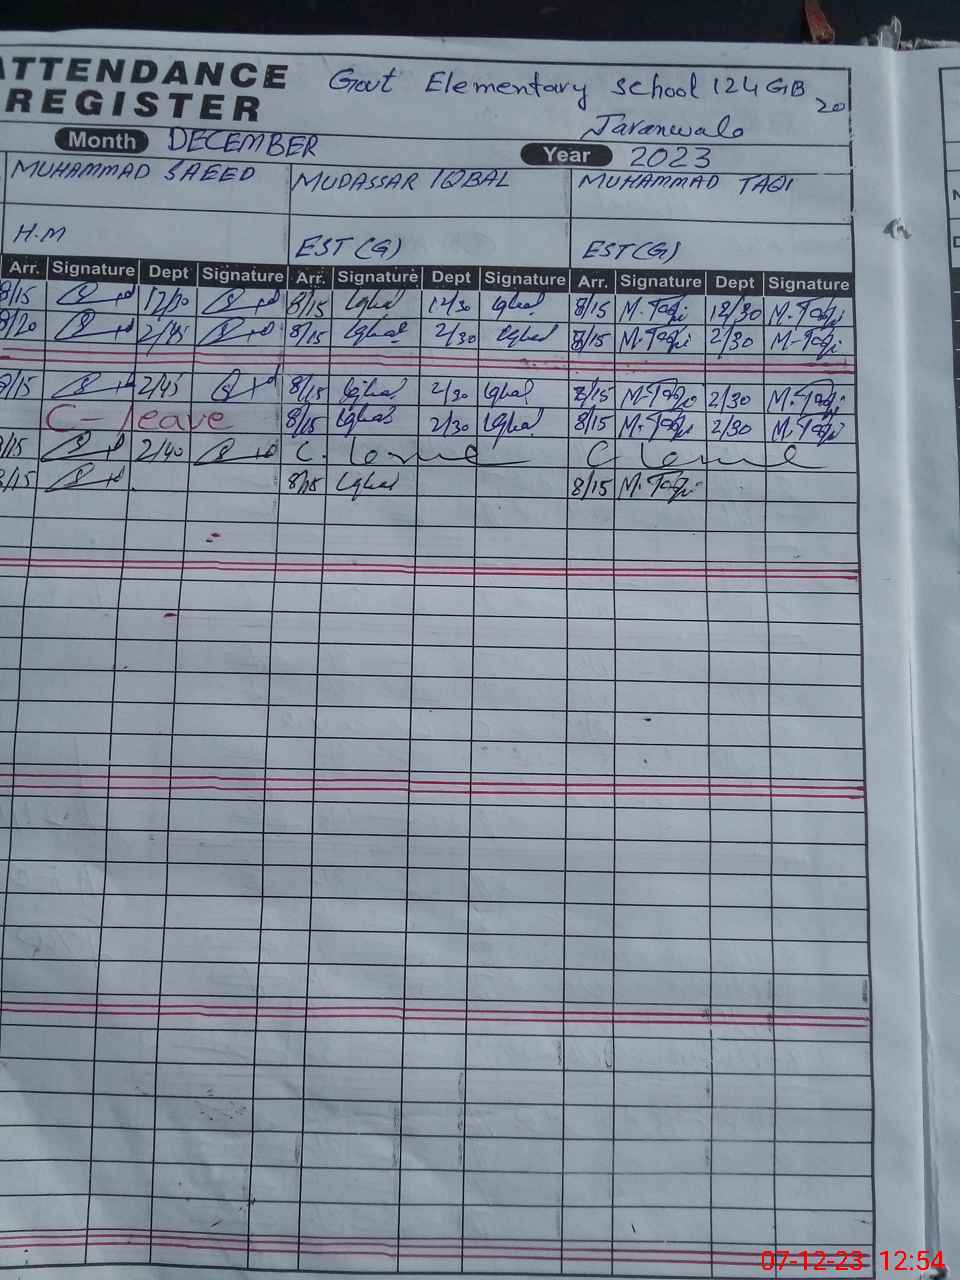 ATTENDANCE REGISTER
Govt Elementary School 124 GB
20
Jaranwala
Month DECEMBER
Year 2023
MUHAMMAD SAEED MUDASSAR IQBAL MUHAMMAD TAQI
H.M EST (G) EST (G)
Arr. Signature Dept Signature Arr. Signature Dept Signature Arr. Signature Dept Signature
8/15 12/30 8/15 Iqbal 12/30 Iqbal 8/15 M.Taqi 12/30 M.Taqi
8/20 2/45 8/15 Iqbal 2/30 Iqbal 8/15 M.Taqi 2/30 M-Taqi
8/15 2/45 8/15 Iqbal 2/30 Iqbal 8/15 M-Taqi 2/30 M.Taqi
C-leave 8/15 Iqbal 2/30 Iqbal 8/15 M.Taqi 2/30 M.Taqi
8/15 2/40 C. leave C leave
8/15 8/15 Iqbal 8/15 M.Taqi
07-12-23 12:54